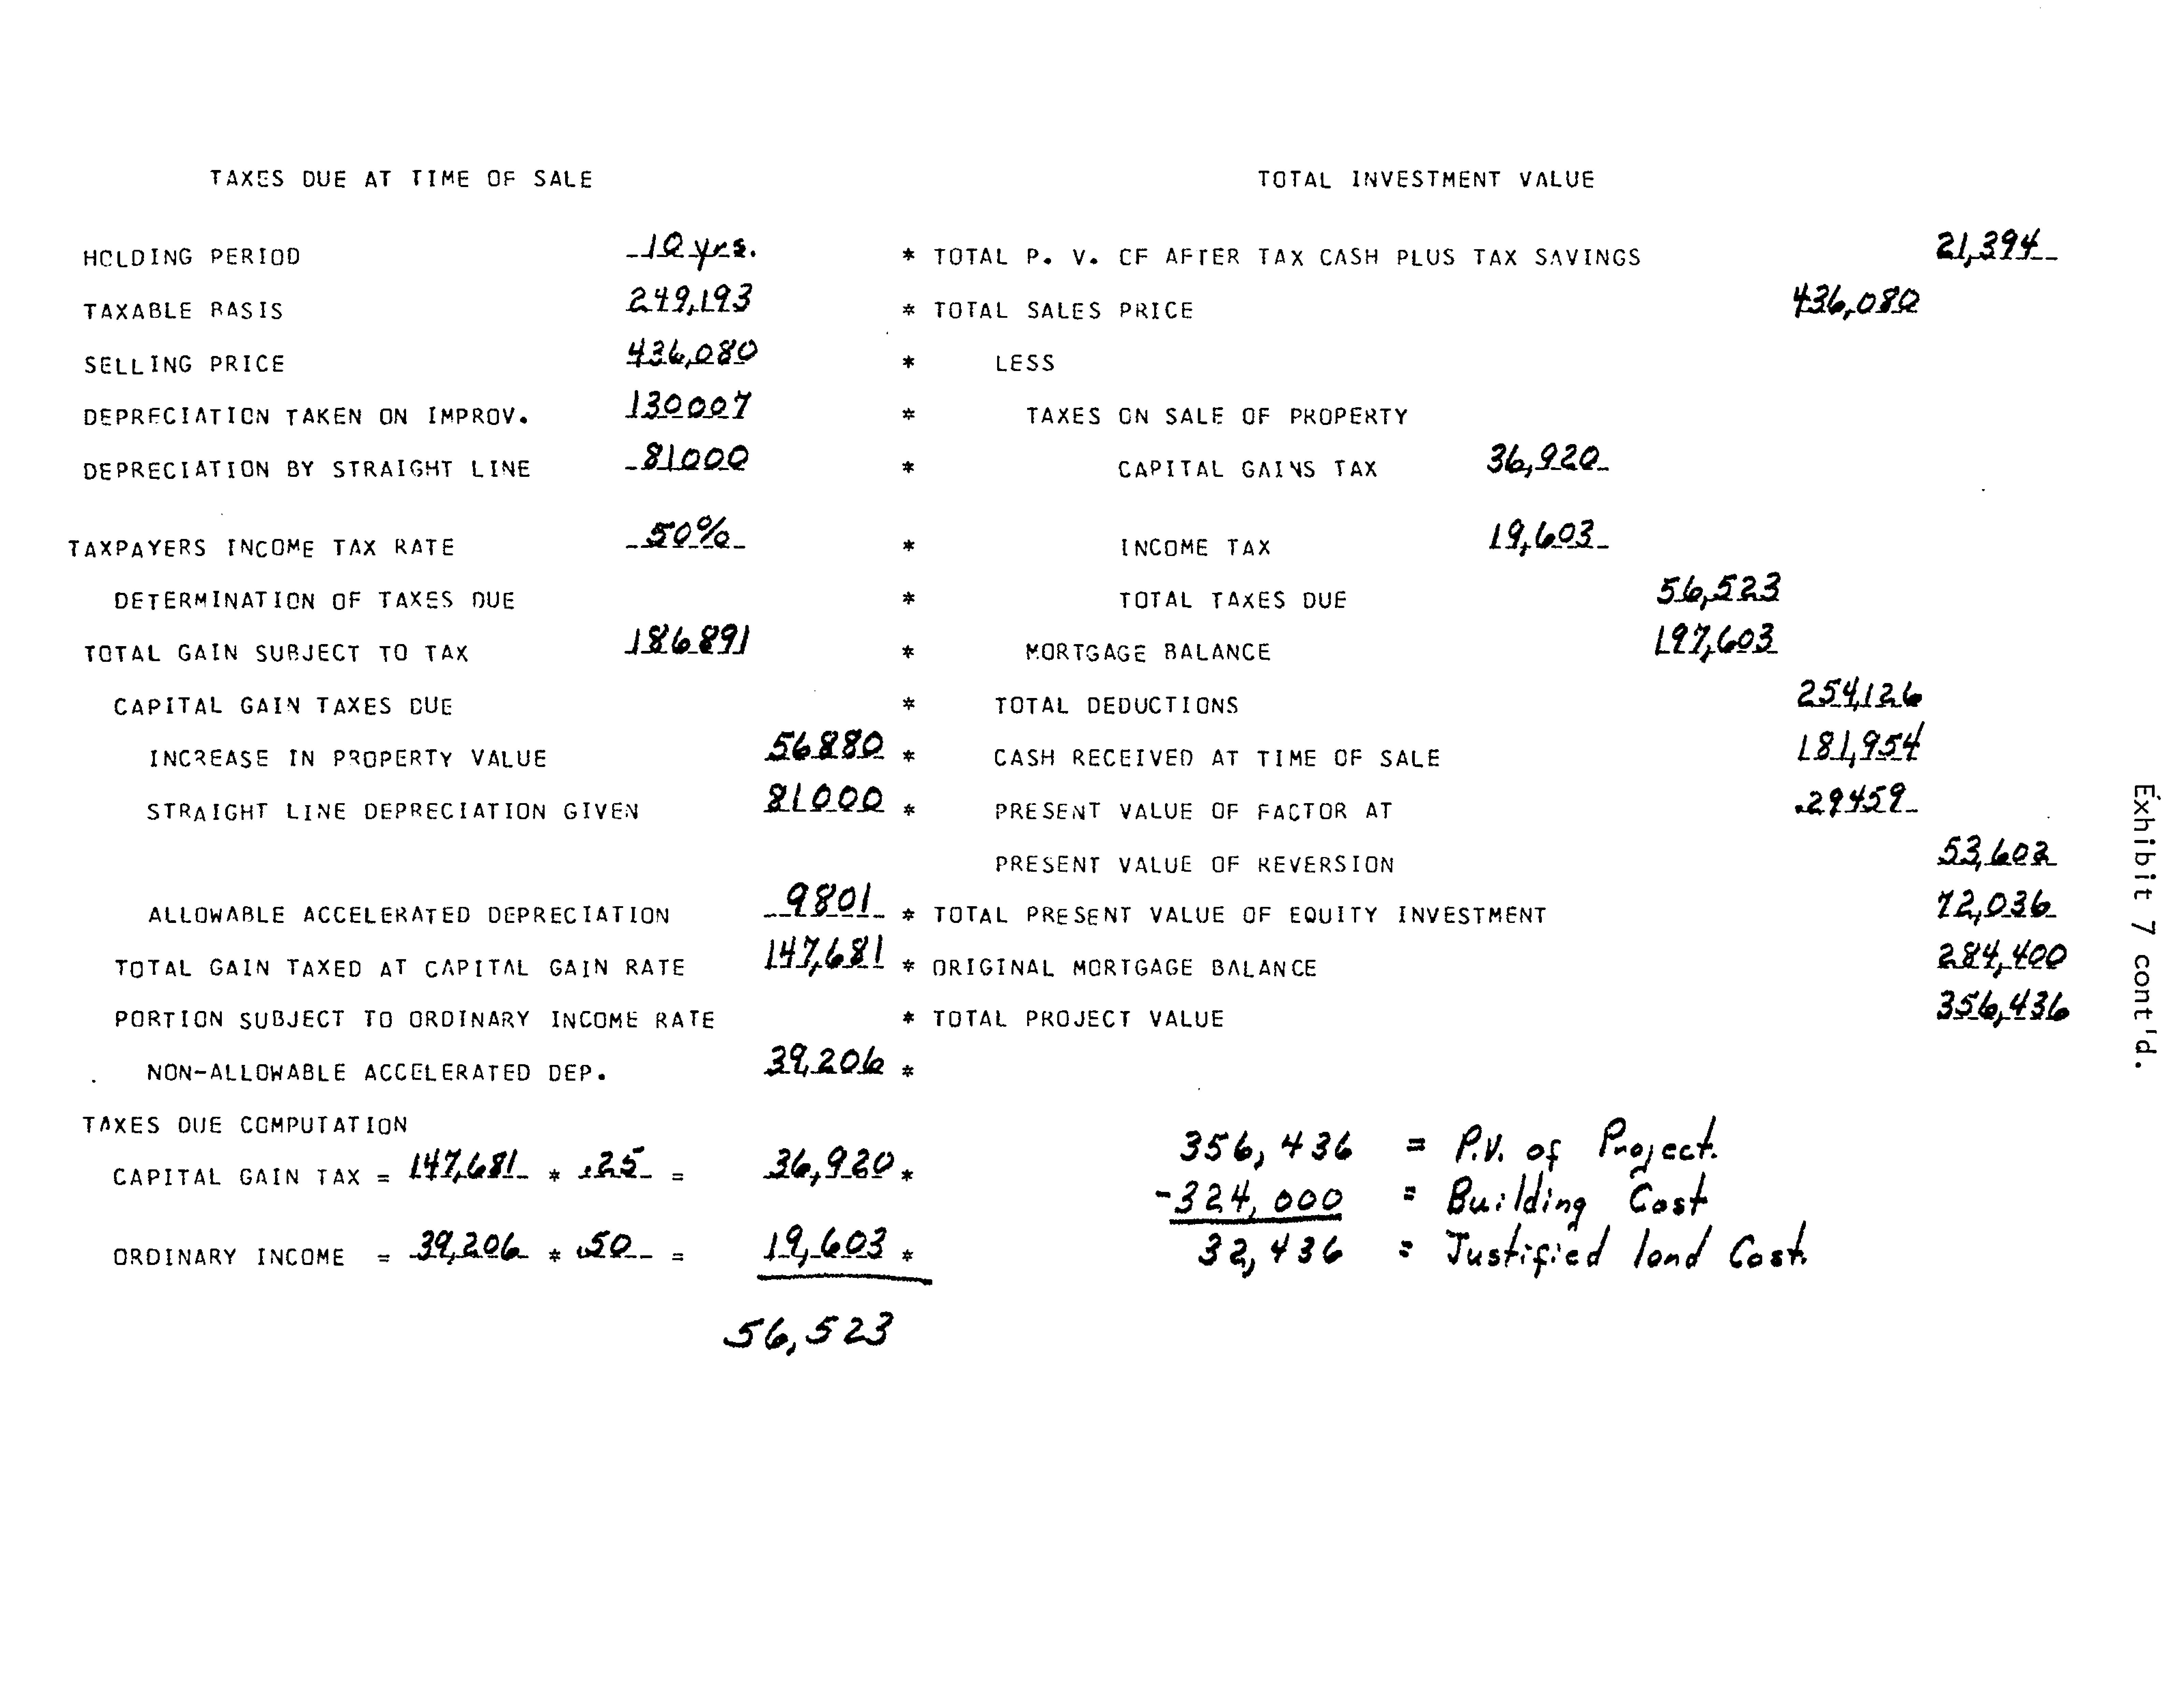 TAXES DUE AT TIME OF SALE
HOLDING PERIOD 10 yrs. *
TAXABLE BASIS 249,193 *
SELLING PRICE 436,080 *
DEPRECIATION TAKEN ON IMPROV. 130007 *
DEPRECIATION BY STRAIGHT LINE 81000 *
TAXPAYERS INCOME TAX RATE 50% *
DETERMINATION OF TAXES DUE *
TOTAL GAIN SUBJECT TO TAX 186891 *
CAPITAL GAIN TAXES DUE *
INCREASE IN PROPERTY VALUE 56880 *
STRAIGHT LINE DEPRECIATION GIVEN 81000 *
ALLOWABLE ACCELERATED DEPRECIATION 9801 *
TOTAL GAIN TAXED AT CAPITAL GAIN RATE 147,681 *
PORTION SUBJECT TO ORDINARY INCOME RATE *
NON-ALLOWABLE ACCELERATED DEP. 39,206 *
TAXES DUE COMPUTATION
CAPITAL GAIN TAX = 147,681 * .25 = 36,920 *
ORDINARY INCOME = 39,206 * .50 = 19,603 *
56,523
TOTAL INVESTMENT VALUE
TOTAL P. V. CF AFTER TAX CASH PLUS TAX SAVINGS 21,394
TOTAL SALES PRICE 436,080
LESS
TAXES ON SALE OF PROPERTY
CAPITAL GAINS TAX 36,920
INCOME TAX 19,603
TOTAL TAXES DUE 56,523
MORTGAGE BALANCE 197,603
TOTAL DEDUCTIONS 254,126
CASH RECEIVED AT TIME OF SALE 181,954
PRESENT VALUE OF FACTOR AT .29459
PRESENT VALUE OF REVERSION 53,602
TOTAL PRESENT VALUE OF EQUITY INVESTMENT 72,036
ORIGINAL MORTGAGE BALANCE 284,400
TOTAL PROJECT VALUE 356,436
356,436 = P.V. of Project.
-324,000 = Building Cost
32,436 = Justified land Cost.
Exhibit 7 cont'd.